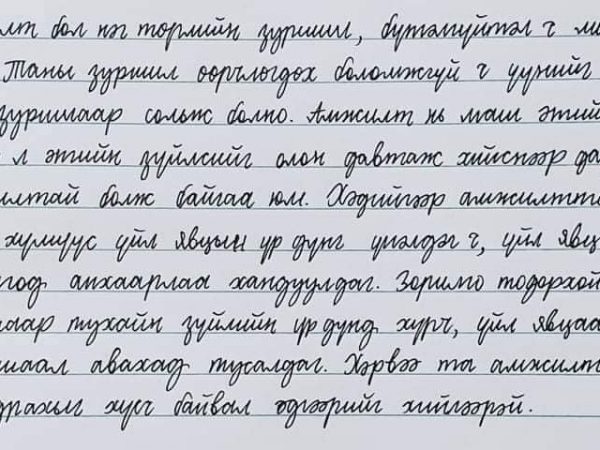 лт бол нэг төрлийн зуршил, бүтэлгүйтэл ч мө
Таны зуршил өөрчлөгдөх боломжгүй ч үүнийг
зуршлаар сольж болно. Амжилт нь маш энгий
л энгийн зүйлсийг олон давтаж хийснээр да
илттай болж байгаа юм. Хэдийгээр амжилтта
хүмүүс үйл явцын үр дүнг үнэлдэг ч, үйл явц
тод анхаарлаа хандуулдаг. Зорилго тодорхой
лаар тухайн зүйлийн үр дүнд хүрч, үйл явцаа
шаал авахад тусалдаг. Хэрвээ та амжилт
драхыг хүсч байвал эдгээрийг хийгээрэй.